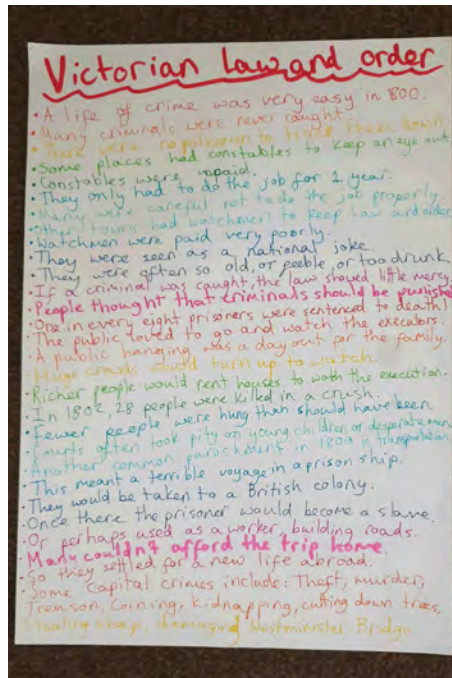 Victorian law and order
• A life of crime was very easy in 800.
• Many criminals were never caught.
• There were no policemen to track them down
• Some places had constables to keep an eye out.
• Constables were unpaid.
• They only had to do the job for 1 year.
• Many were careful not to do the job properly.
• Other towns had watchmen to keep law and order
• Watchmen were paid very poorly.
• They were seen as a national joke.
• They were often so old, or peeble or too drunk
• If a criminal was caught, the law showed little mercy.
• People thought that criminals should be punished
• One in every eight prisoners were sentenced to death!
• The public loved to go and watch the executors.
• A public hanging was a day out for the family.
• Huge crowds would turn up to watch.
• Richer people would rent houses to wath the execution.
• In 1802, 28 people were killed in a crush.
• Fewer people were hung than should have been
• Courts often took pity on young children or desperate men
• Another common punishment in 1800 is transportation
• This meant a terrible voyage in a prison ship.
• They would be taken to a British colony.
• Once there the prisoner would become a slave.
• Or perhaps used as a worker, building roads.
• Many couldn't afford the trip home.
• So they settled for a new life abroad.
• Some Capital crimes include: Theft, murder,
Treason, Coining, kidnapping, cutting down trees,
Stealing sheep, damaging Westminister Bridge